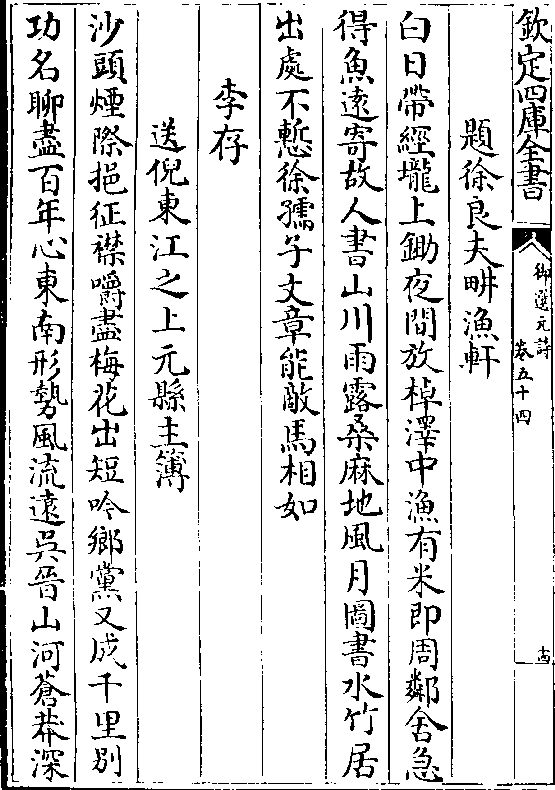 欽定四庫全書
御選元詩
卷五十四
十四
題徐良夫畊漁軒
白日帶經壠上鋤夜間放棹澤中漁有米即周鄰舍急
得魚遠寄故人書山川雨露桑麻地風月圖書水竹居
出處不慙徐孺子文章能敵馬相如
李存
送倪東江之上元縣主簿
沙頭煙際挹征襟嚼盡梅花出短吟鄉黨又成千里別
功名聊盡百年心東南形勢風流遠吳晉山河蒼莽深